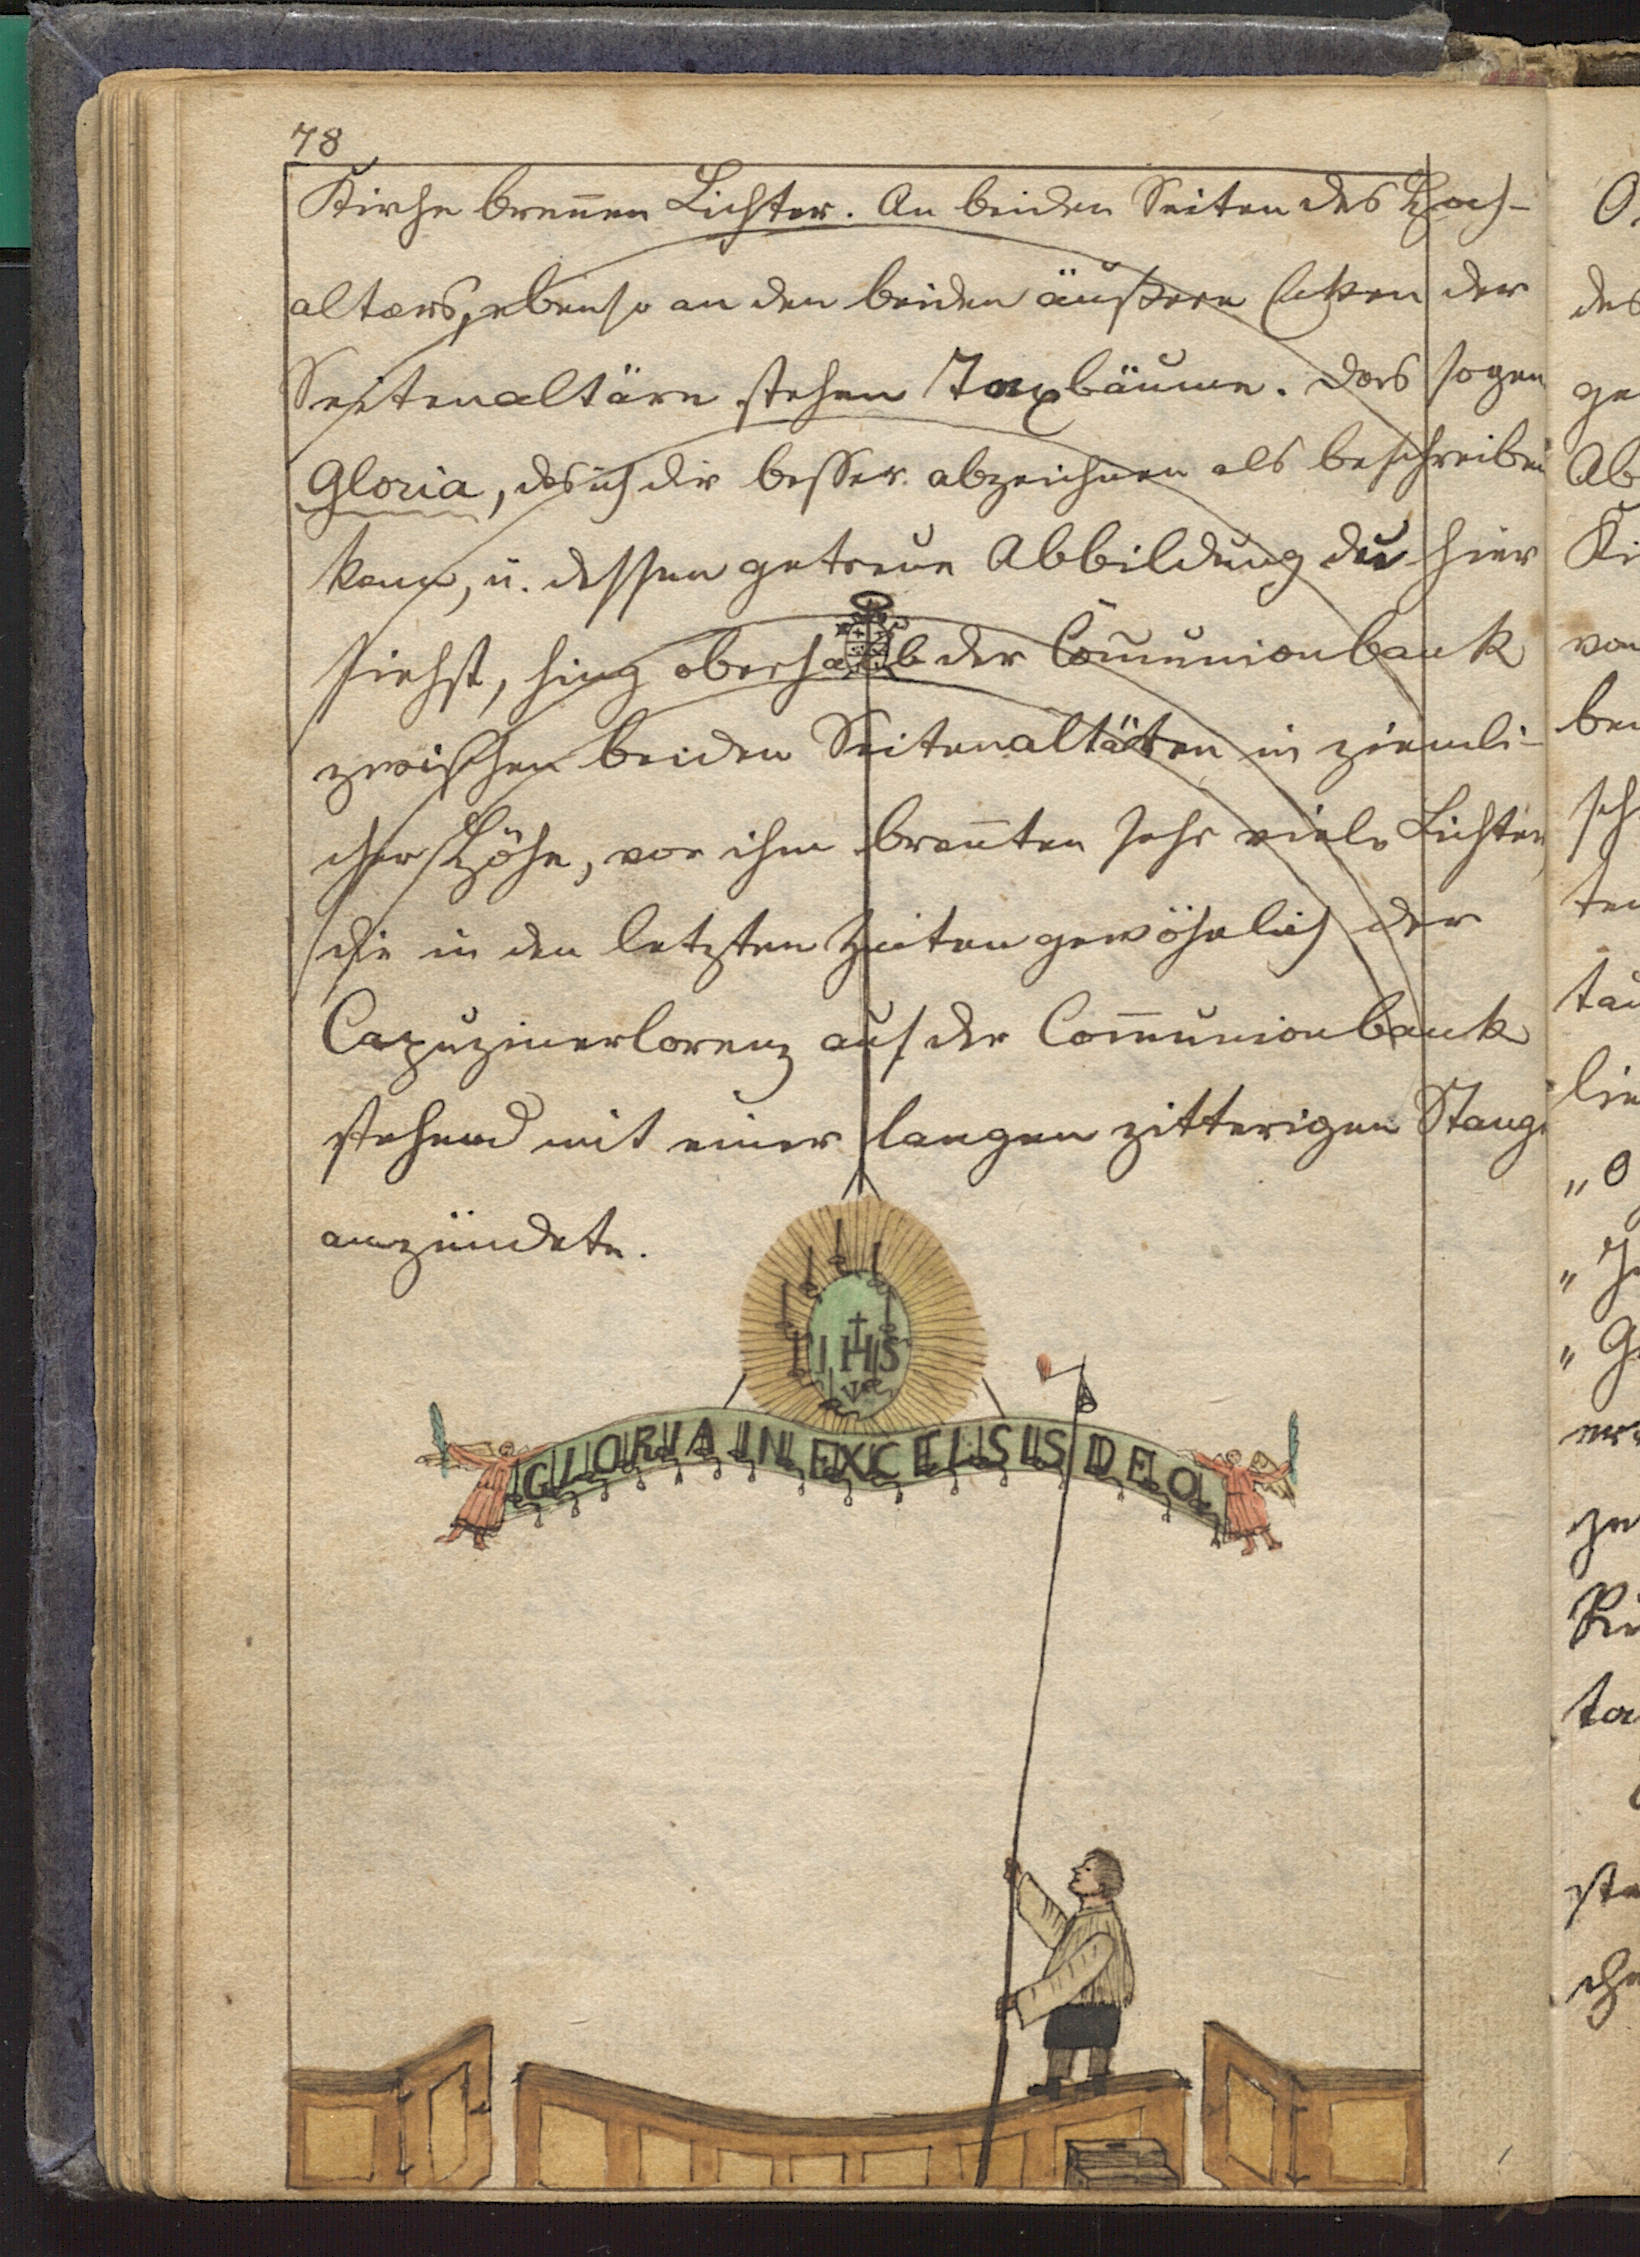 78
Kirche breñen Lichter. An beiden Seiten des Hoch-
altars, ebenso an den beiden äußern Ecken der
Seitenaltäre stehen Taxbäume. Das sogen
Gloria, das ich dir besser abzeichnen als beschreiben
kann, u. dessen getreue Abbildung du hier
siehst, hing oberhalb der Com̄unionbank
zwischen beiden Seitenaltären in ziemli-
cher Höhe, vor ihm breñten sehr viele Lichter,
die in den letzten Zeiten gewöhnlich der
Capuzinerlorenz auf der Com̄unionbank
stehend mit einer langen zitterigen Stange
anzündete.
IHS
GLORIA IN EXCELSIS DEO